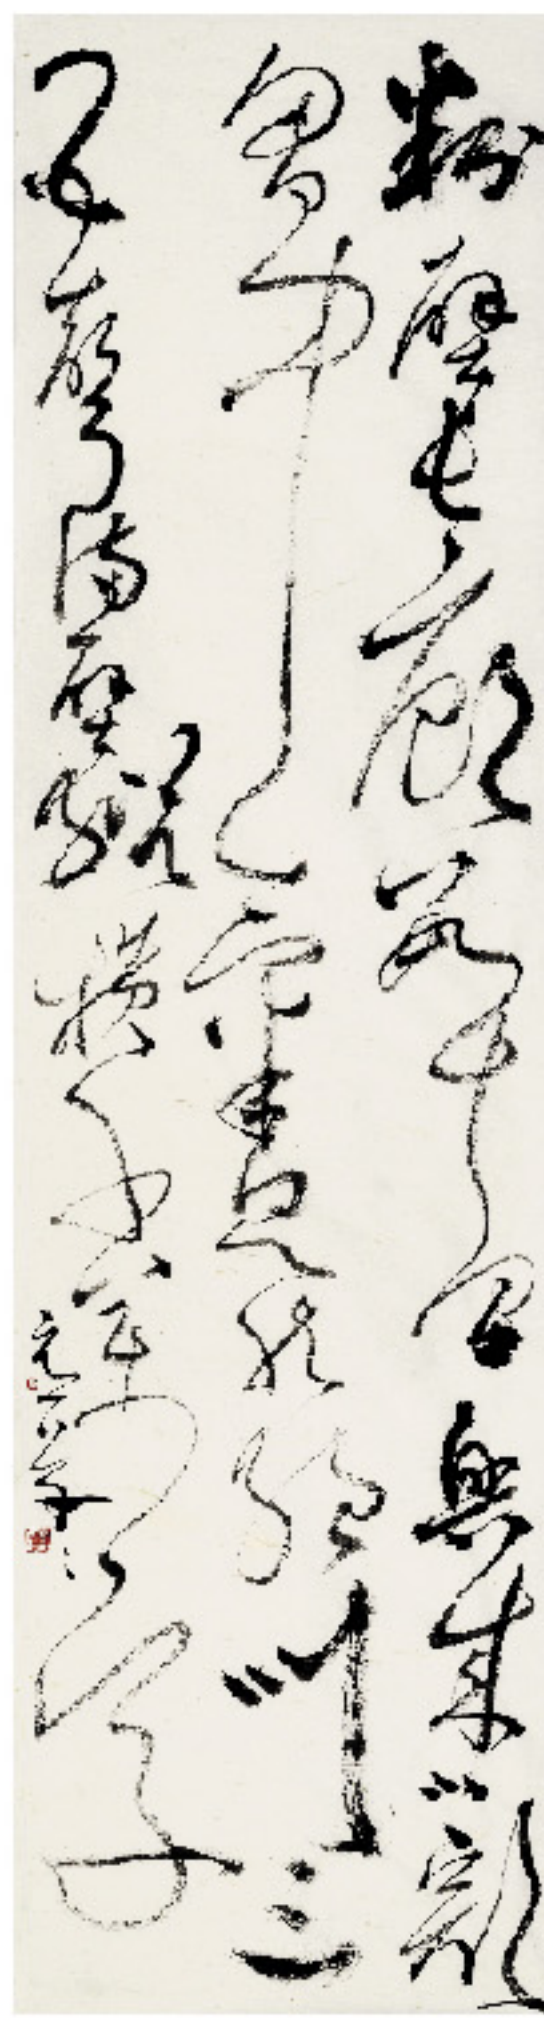 粉壁長廊數十間興來小豁
胸中氣忽然絕叫三
五聲滿壁縱橫千萬字